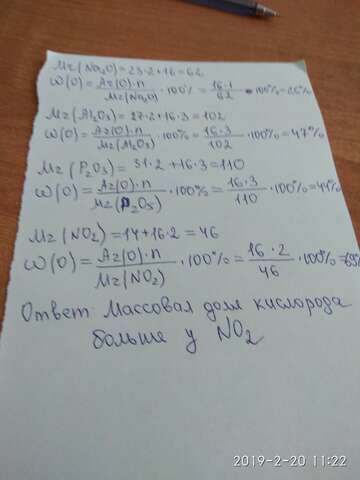 Mr(Na₂O)=23·2+16=62
ω(O)=Ar(O)·n/Mr(Na₂O)·100%=16·1/62·100%=26%
Mr(Al₂O₃)=27·2+16·3=102
ω(O)=Ar(O)·n/Mr(Al₂O₃)·100%=16·3/102·100%=47%
Mr(P₂O₃)=31·2+16·3=110
ω(O)=Ar(O)·n/Mr(P₂O₃)·100%=16·3/110·100%=44%
Mr(NO₂)=14+16·2=46
ω(O)=Ar(O)·n/Mr(NO₂)·100%=16·2/46·100%=69%
Ответ: Массовая доля кислорода
больше у NO₂
2019-2-20 11:22